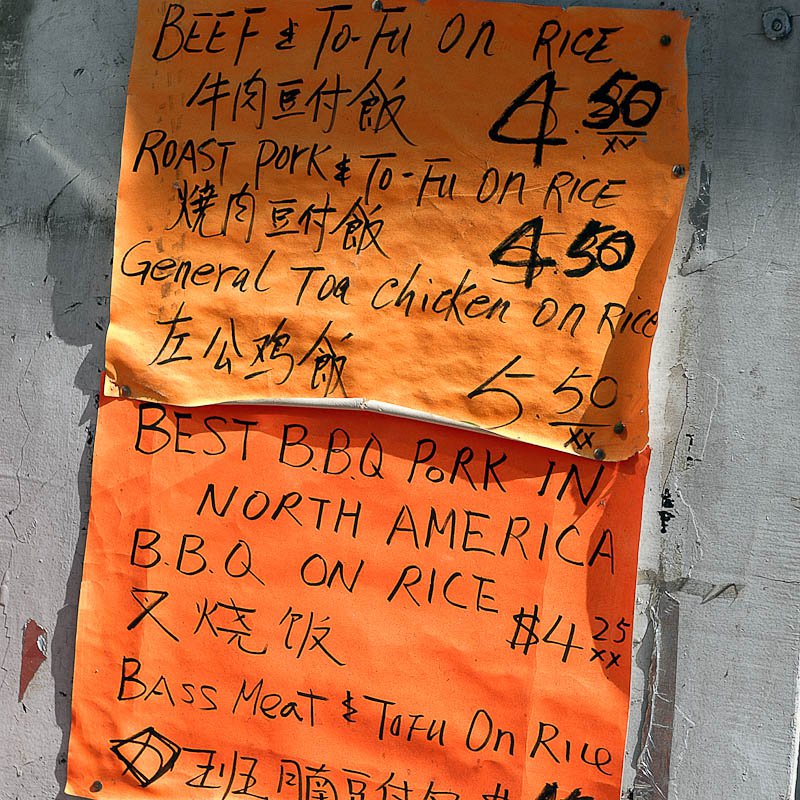 BEEF & TO-FU ON RICE
牛肉豆付飯 4.50
ROAST PORK & TO-FU ON RICE
燒肉豆付飯 4.50
General Toa chicken on Rice
左公鸡飯 5.50
BEST B.B.Q PORK IN
NORTH AMERICA
B.B.Q ON RICE
叉烧饭 $4.25
BASS Meat & TOFU On Rice
班腩豆付